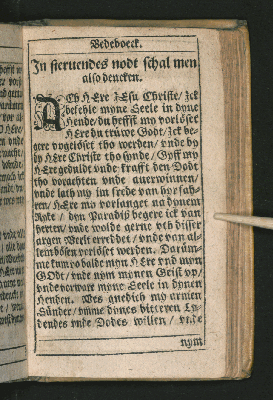 Bedeboeck.
In steruendes nodt schal men
also dencken.
ACh HEre JEsu Christe / Jck
befehle myne Seele in dyne
Hende / du heffst my vorlöset
HEre du trüwe Godt / Jck be-
gere vpgelöset tho werden / vnde by
dy HEre Christe tho synde / Gyff my
HEre gedult vnde krafft den Dodt
tho vorachten vnde auerwinnen /
vnde lath my im frede van hyr fah-
ren / HEre my vorlanget na dynem
Ryke / dyn Paradiß begere ick van
herten / vnde wolde gerne vth disser
argen Werlt erreddet / vnde van al-
lem bösen verlöset werden. Darüm-
me kum vo balde myn HEre vnd myn
GOdt / vnde nym mynen Geist vp /
vnde vorware myne Seele in dynen
Henden. Wes gnedich my armen
Sünder / vmme dynes bitteren Ly-
dendes vnde Dodes willen / vnde
nym